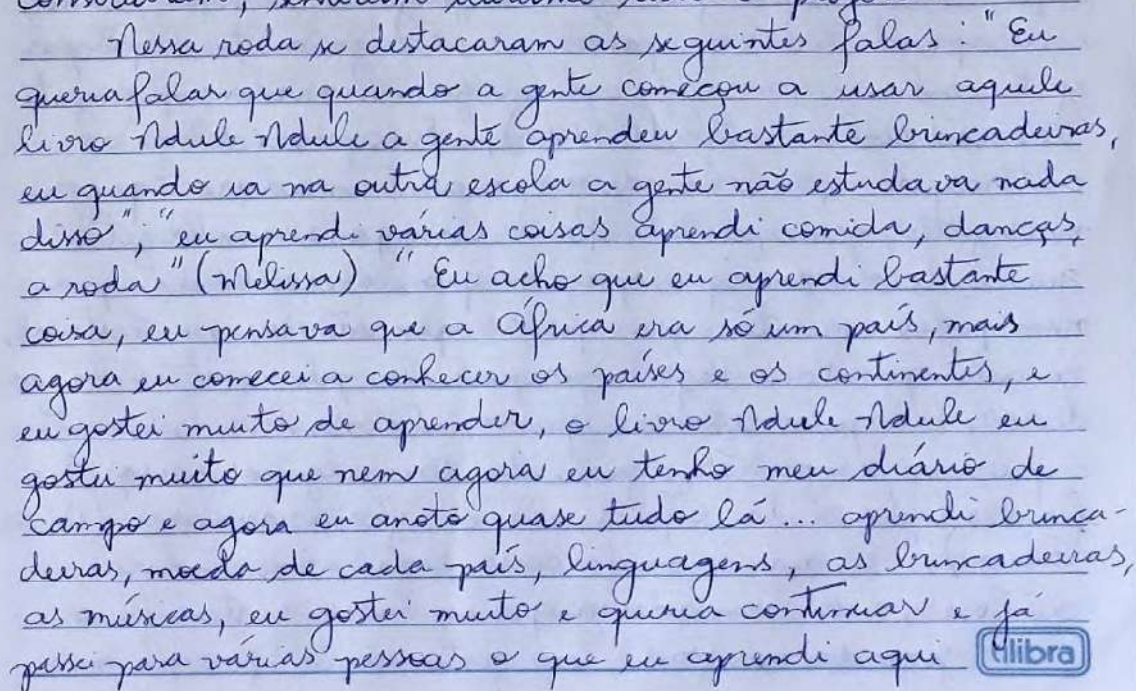 Nessa roda se destacaram as seguintes falas: "Eu
queria falar que quando a gente começou a usar aquele
livro Ndule Ndule a gente aprendeu bastante brincadeiras,
eu quando ia na outra escola a gente não estudava nada
disso", "eu aprendi várias coisas aprendi comida, danças,
a roda" (Mélissa) "Eu acho que eu aprendi bastante
coisa, eu pensava que a África era só um país, mais
agora eu comecei a conhecer os países e os continentes, e
eu gostei muito de aprender, o livro Ndule Ndule eu
gostei muito que nem agora eu tenho meu diário de
campo e agora eu anoto quase tudo lá... aprendi brinca-
deiras, moeda de cada país, linguagens, as brincadeiras,
as músicas, eu gostei muito e queria continuar e já
passei para várias pessoas o que eu aprendi aqui
tilibra